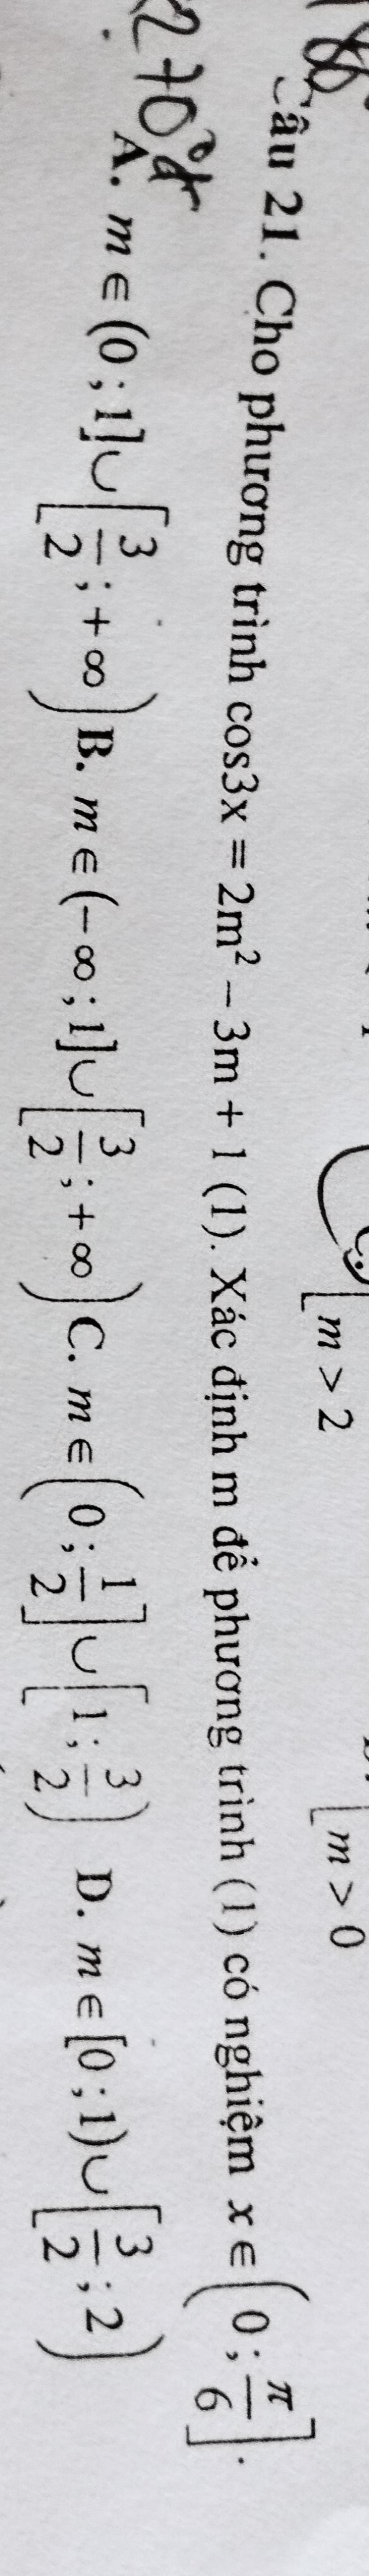 m > 2
m > 0
Câu 21. Cho phương trình cos3x = 2m² − 3m + 1 (1). Xác định m để phương trình (1) có nghiệm x ∈ (0 ; π/6].
A. m ∈ (0 ; 1] ∪ [3/2 ; +∞) B. m ∈ (−∞ ; 1] ∪ [3/2 ; +∞) C. m ∈ (0 ; 1/2] ∪ [1 ; 3/2) D. m ∈ [0 ; 1) ∪ [3/2 ; 2)